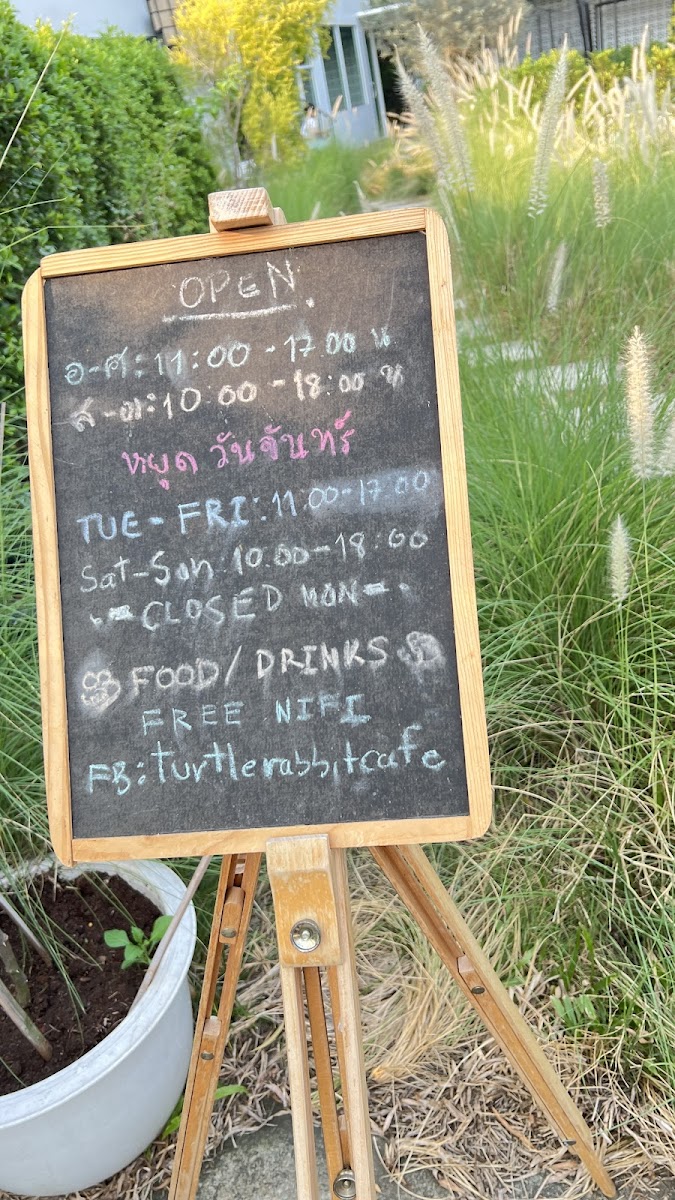 OPEN
อ-ศ: 11:00 - 17.00 น
ส-อา: 10:00 - 18:00 น
หยุด วันจันทร์
TUE - FRI: 11.00-17.00
Sat-Son: 10.00-18:00
CLOSED MON
FOOD/DRINKS
FREE NIFI
FB: turtlerabbitcafe